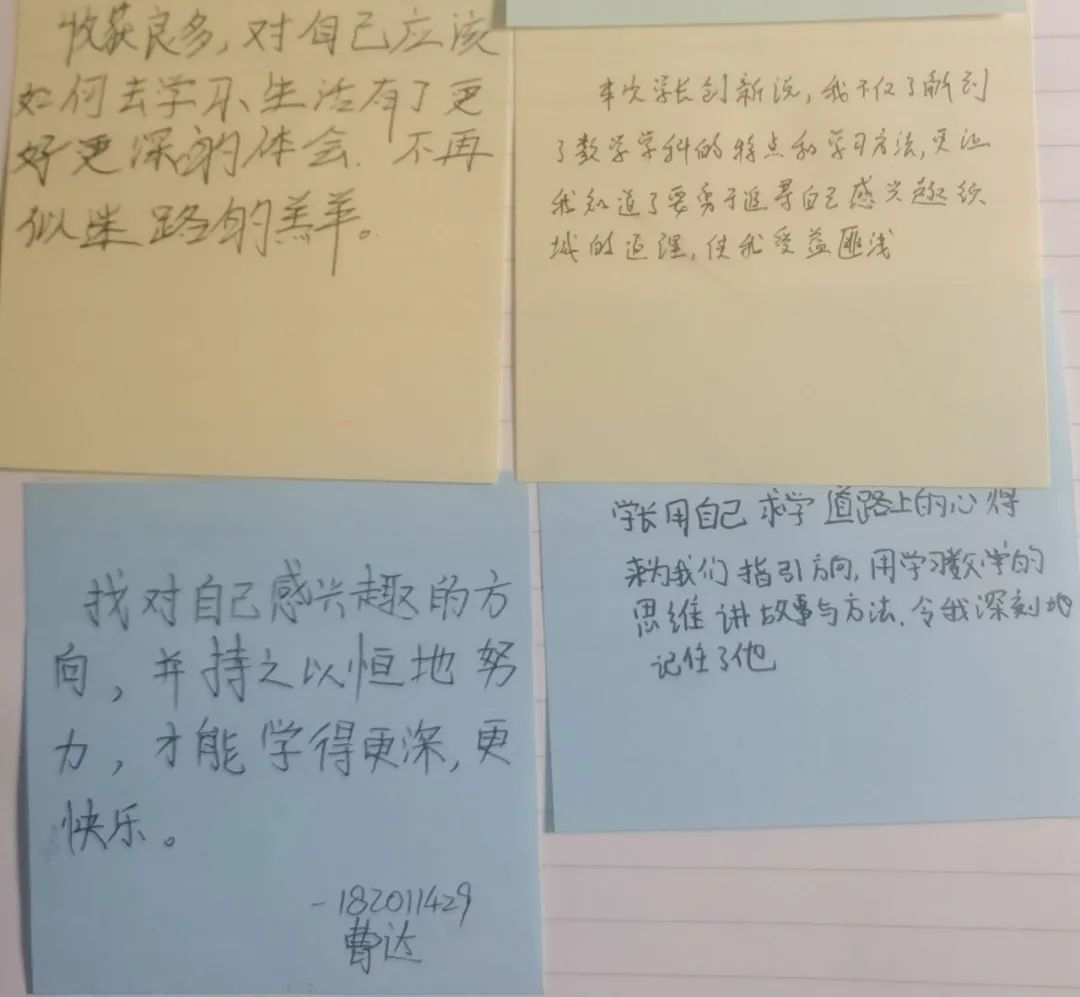 收获良多,对自己应该
如何去学习、生活有了更
好更深的体会.不再
似迷路的羔羊。
本次学长创新说,我不仅了解到
了数学学科的特点和学习方法,更让
我知道了要勇于追寻自己感兴趣领
域的道理,使我受益匪浅
找对自己感兴趣的方
向,并持之以恒地努
力,才能学得更深,更
快乐。
-182011429
曹达
学长用自己求学道路上的心得
来为我们指引方向,用学习数学的
思维讲故事与方法.令我深刻地
记住了他